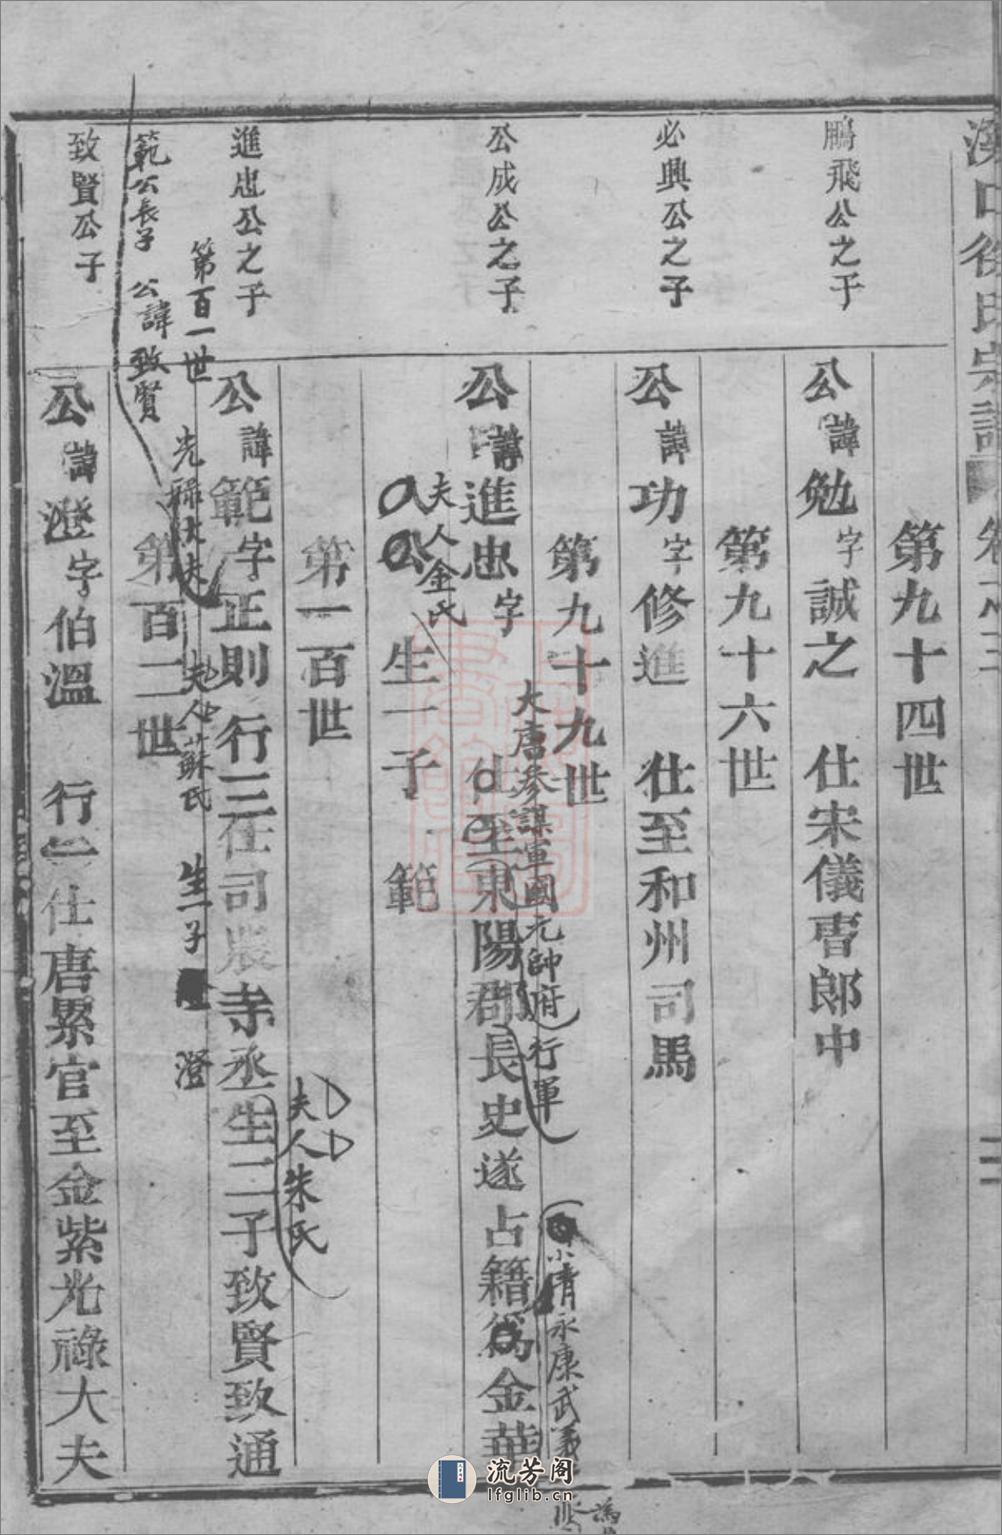 溪口徐氏宗譜
第九十四世
鵬飛公之子
公諱勉字誠之 仕宋儀曹郎中
第九十六世
必興公之子
公諱功字修進 仕至和州司馬
第九十九世
大唐參謀軍國元帥府行軍
清永康武義
公成公之子
公諱進忠字 仕至東陽郡長史遂占籍為金華
夫人金氏
公 生一子 範
第一百世
夫人朱氏
進忠公之子
公諱範字正則 行三仕司農寺丞生二子致賢致通
第百一世
範公長子 公諱致賢
光祿大夫
夫人蘇氏 生一子 澄
第百二世
致賢公子
公諱澄字伯溫 行一仕唐累官至金紫光祿大夫
流芳阁
lfglib.cn